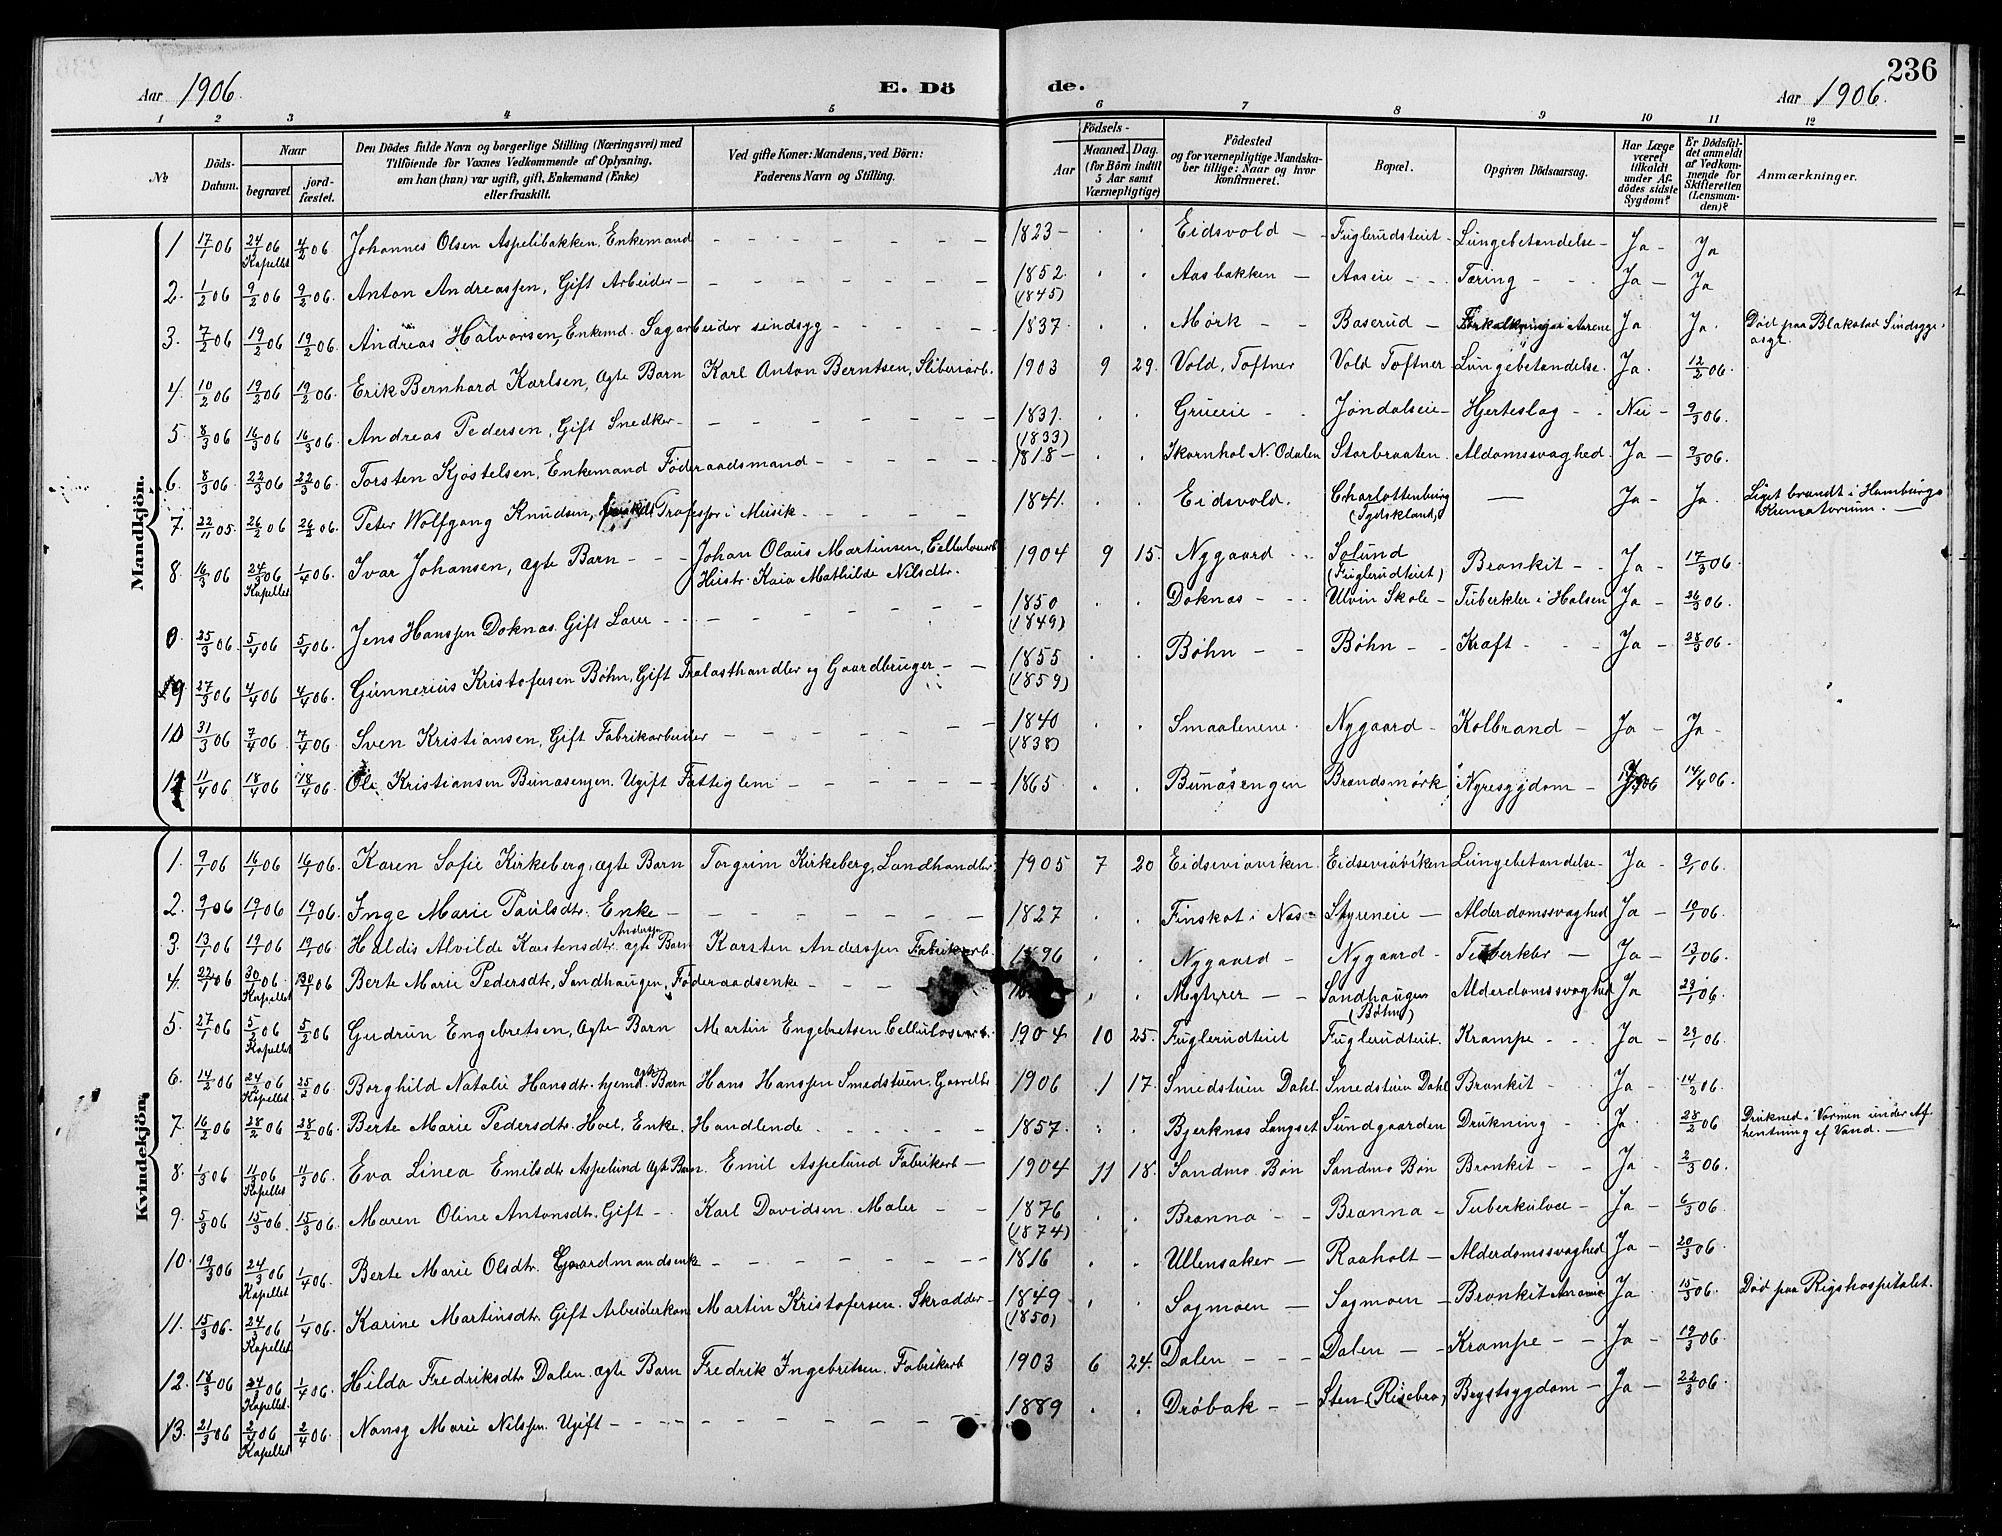 236
Aar 1906. E. Dö de. Aar 1906.
1 2 3 4 5 6 7 8 9 10 11 12
№
Döds-Datum.
Naar
begravet.
jord-fæstet.
Den Dödes fulde Navn og borgerlige Stilling (Næringsvei) med
Tilföiende for Voxnes Vedkommende af Oplysning,
om han (hun) var ugift, gift, Enkemand (Enke)
eller fraskilt.
Ved gifte Koner: Mandens, ved Børn:
Faderens Navn og Stilling.
Födsels-
Aar
Maaned. Dag.
(for Börn indtil
5 Aar samt
Værnepligtige)
Födested
og for værnepligtige Mandska-
ber tillige: Naar og hvor
konfirmeret.
Bopæl.
Opgiven Dödsaarsag.
Har Læge
været
tilkaldt
under Af-
dödes sidste
Sygdom?
Er Dödsfal-
det anmeldt
af Vedkom-
mende for
Skifteretten
(Lensman-
den)?
Anmærkninger.
Mandkjön.
1 17/1 06 24/1 06 Kapellet 4/2 06 Johannes Olsen Aspelibakken, Enkemand 1823 Eidsvold Fuglerudsteiet Lungebetændelse Ja Ja
2. 1/2 06 9/2 06 9/2 06. Anton Andreassen, Gift Arbeider 1852. (1845) Aasbakken Aaseie Tæring Ja Ja
3. 7/2 06 19/2 06 19/2 06. Andreas Halvorsen, Enkemd. Sagarbeider sindsyg 1837. Mørk Baserud Forkalkninger i Aarene Ja Ja. Død paa Blakstad Sindsyge-
asyl.
4. 10/2 06 19/2 06 19/2 06. Erik Bernhard Karlsen, ægte Barn Karl Anton Berntsen, Sliberiarb. 1903 9 29. Vold, Tøftner Vold Tøftner Lungebetændelse. Ja. 12/2 06.
5 8/3 06 16/3 06 16/3 06. Andreas Pedersen, Gift Snedker 1831. (1833) Grueeie Jøndalseie Hjerteslag Nei 9/3 06.
6. 8/3 06 22/3 06 22/3 06. Torsten Kjøstelsen, Enkemand Føderaadsmand 1818 Skornhol N. Odalen Storbraaten. Aldomssvaghed. Ja 9/3 06.
7. 22/11 05. 26/2 06 26/2 06. Peter Wolfgang Knudsen, fraskilt Professor i Musik 1841. Eidsvold. Charlottenburg (Tydskland) Ja Ja. Liget brændt i Hamburgs
Krematorium.
8. 16/3 06 24/3 06 Kapellet 1/4 06. Ivar Johansen, ægte Barn Johan Olaus Martinsen, Cellulosearb 1904 9 15. Nygaard Solund Bronkit Ja 17/3 06.
Hustr. Kaia Mathilde Nilsdtr. (Fuglerudteiet)
25/3 06. 5/4 06 5/4 06. Jens Hanssen Doknæs. Gift Lærer 1850 (1849) Doknæs Ulvin Skole Tuberkler i Halsen Ja 26/3 06.
9 27/3 06 4/4 06 4/4 06. Gunnerius Kristofersen Bøhn, Gift Trælasthandler og Gaardbruger 1855 (1859) Bøhn Bøhn Kræft Ja 28/3 06.
10 31/3 06 7/4 06. 7/4 06. Sven Kristiansen, Gift Fabrikarbeider 1840 (1838) Smaalenene. Nygaard Kolbrand Ja Ja
11 11/4 06 18/4 06 18/4 06. Ole Kristiansen Bunæsengen. Ugift Fattiglem 1865. Bunæsengen Brandsmørk Nyresygdom Ja 14/4 06.
Kvindekjön.
1. 9/1 06 16/1 06 16/1 06. Karen Sofie Kirkeberg, ægte Barn Torgrim Kirkeberg, Landhandler 1905 7 20 Eidsviaviken. Eidsviaviken Lungebetændelse Ja 9/1 06.
2. 9/1 06 19/1 06 19/1 06. Inge Marie Paulsdtr. Enke 1827 Finskot i Næs Styreneie Alderdomssvaghed Ja 10/1 06.
3. 13/1 06 19/1 06 19/1 06. Haldis Alvilde Karstensdtr. Anderssen ægte Barn Karsten Anderssen Fabrikarb. 1896 Nygaard Nygaard Tuberkler Ja 13/1 06.
4. 22/1 06 30/1 06 Kapellet 30/1 06 Berte Marie Pedersdtr, Sandhaugen, Føderaadsenke Sandhaugen (Bøhn) Alderdomssvaghed Ja 23/1 06.
5. 27/1 06 5/2 06 Kapellet 5/2 06 Gudrun Engebretsen, ægte Barn Martin Engebretsen Cellulosearb. 1904 10 25. Fuglerudteiet Fuglerudteiet. Krampe Ja 29/1 06.
6. 14/2 06 24/2 06 Kapellet 25/2 06 Borghild Natalie Hansdtr. hjemd. ægte Barn Hans Hanssen Smedstuen, Gaardbr 1906 1 17. Smedstuen Dahl. Smedstuen Dahl Bronkit Ja 14/2 06.
7. 16/2 06 28/2 06 28/2 06. Berte Marie Pedersdtr. Hoel, Enke. Handlende 1857. Bjerknæs Langset Sundgaarden Drukning Ja. 28/2 06 Druknede i Vormen under Af-
hentning af Vand.
8. 1/3 06 11/3 06 Kapellet 11/3 06 Eva Linea Emilsdtr Aspelund ægte Barn. Emil Aspelund Fabrikarb 1904 11 18. Sandmo Bøn Sandmo Bøn Bronkit Ja 2/3 06.
9. 5/3 06 15/3 06. 15/3 06. Maren Oline Antonsdtr. Gift Karl Davidsen Maler 1876 (1874) Brænna Brænna Tuberkulose Ja 6/3 06.
10. 19/3 06 24/3 06 Kapellet 1/4 06. Berte Marie Olsdtr. Gaardmandsenke 1816 Ullensaker Raaholt Alderdomssvaghed Ja 20/3 06.
11. 15/3 06. 24/3 06 Kapellet 1/4 06. Karine Martinsdtr. Gift Arbeiderkone Martin Kristofersen. Skrædder 1849 (1850) Sagmoen Sagmoen Bronkit Anæmie Ja 15/3 06. Død paa Rigshospitalet.
12. 18/3 06 24/3 06 Kapellet. 1/4 06. Hilda Fredriksdtr Dalen. ægte Barn Fredrik Ingebretsen. Fabrikarb 1903 6 24. Dalen Dalen Krampe Ja 19/3 06.
13. 21/3 06 2/4 06 Kapellet 2/4 06. Nansy Marie Nilssen. Ugift 1889 Drøbak Sten (Risebro) Brystsygdom Ja 22/3 06.